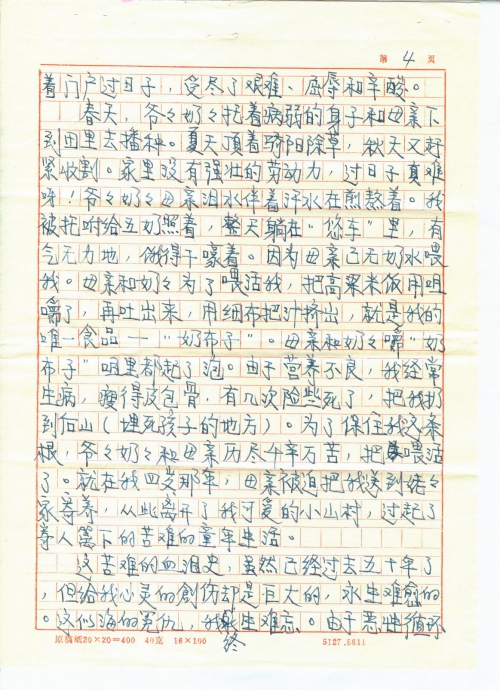 第 4 页
着门户过日子，受尽了艰难、屈辱和辛酸。
春天，爷々奶々托着病弱的身子和母亲下
到田里去播种。夏天顶着骄阳除草，秋天又赶
紧收割。家里没有强壮的劳动力，过日子真难
呀！爷々奶々母亲泪水伴着汗水在煎熬着。我
被托咐给五奶照着，整天躺在“悠车”里，有
气无力地，饿得干嚎着。因为母亲已无奶水喂
我。母亲和奶々为了喂活我，把高粱米饭用咀
嚼了，再吐出来，用细布把汁挤出，就是我的
唯一食品——“奶布子”。母亲和奶々嚼“奶
布子”咀里都起了泡。由于营养不良，我经常
生病，瘦得皮包骨，有几次险些死了，把我扔
到石山（埋死孩子的地方）。为了保住我这条
根，爷々奶々和母亲历尽千辛万苦，把喂活
了。就在我四岁那年，母亲被迫把我送到姥々
家寄养，从此离开了我可爱的小山村，过起了
寄人篱下的苦难的童年生活。
这苦难的血泪史，虽然已经过去五十年了
，但给我心灵的创伤却是巨大的，永生难愈的
。这似海的冤仇，我终生难忘。由于恶性循环
原稿纸20×20=400 40克 16×100 5127.6811